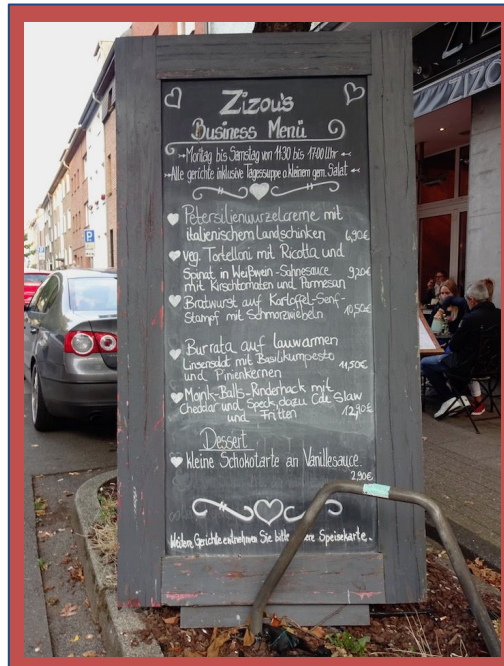 Zizou's
Business Menü
Montag bis Samstag von 11:30 bis 17:00 Uhr
Alle gerichte inklusive Tagessuppe o. kleinem gem. Salat
Petersilienwurzelcreme mit
italienischem Landschinken 6,90€
veg. Tortelloni mit Ricotta und
Spinat in Weißwein-Sahnesauce 9,20€
mit Kirschtomaten und Parmesan
Bratwurst auf Kartoffel-Senf-
Stampf mit Schmorzwiebeln 10,50€
Burrata auf lauwarmen
Linsensalat mit Basilikumpesto
und Pinienkernen 11,50€
Monk-Balls-Rinderhack mit
Cheddar und Speck, dazu Cole Slaw
und Fritten 12,90€
Dessert
kleine Schokotarte an Vanillesauce.
2,90€
Weitere Gerichte entnehmen Sie bitte Speisekarte.
ZIZOU
P